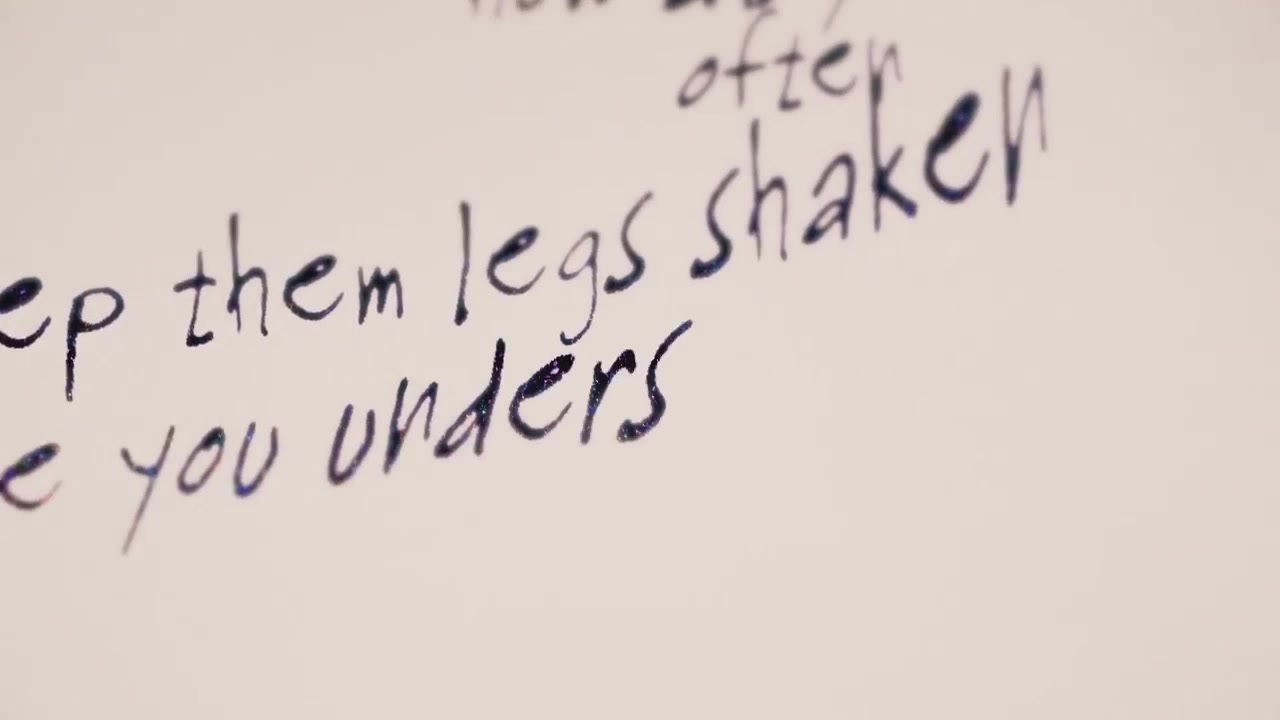 often
ep them legs shaken
e you unders